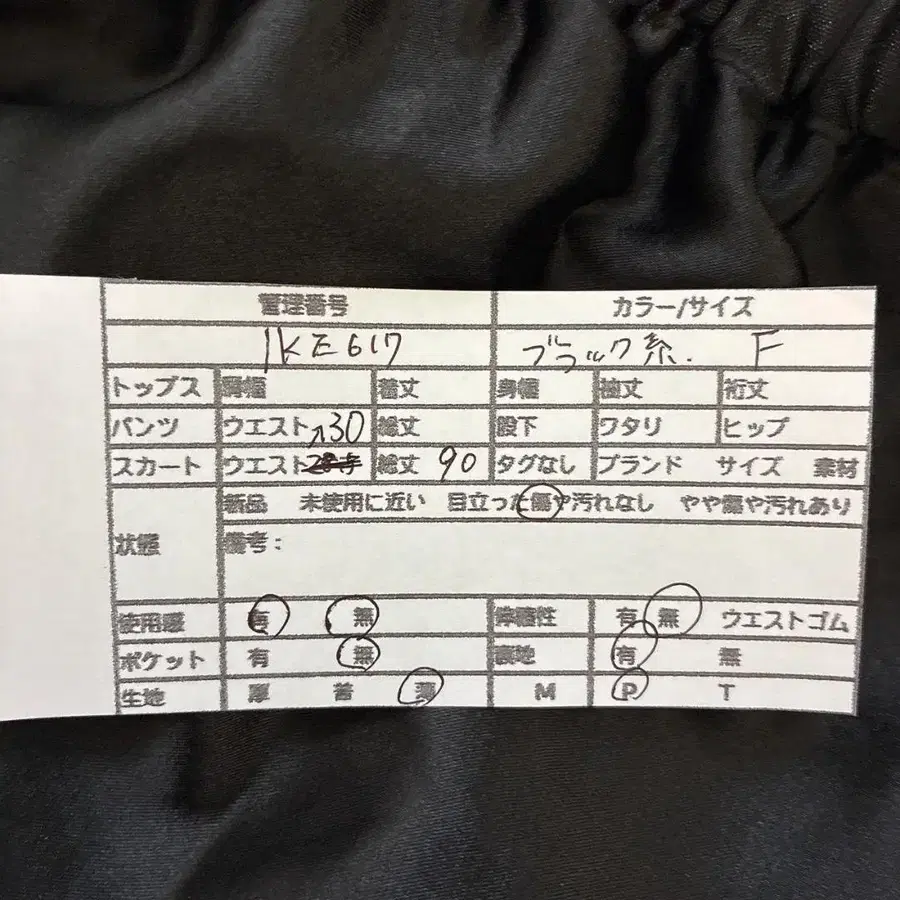 管理番号 カラー/サイズ
IKE617 ブラック系. F
トップス 肩幅 着丈 身幅 袖丈 裄丈
パンツ ウエスト 30 総丈 股下 ワタリ ヒップ
スカート ウエスト 総丈 90 タグなし ブランド サイズ 素材
新品 未使用に近い 目立った傷や汚れなし やや傷や汚れあり
状態 備考：
使用感 有 無 伸縮性 有 無 ウエストゴム
ポケット 有 無 裏地 有 無
生地 厚 普 薄 M P T